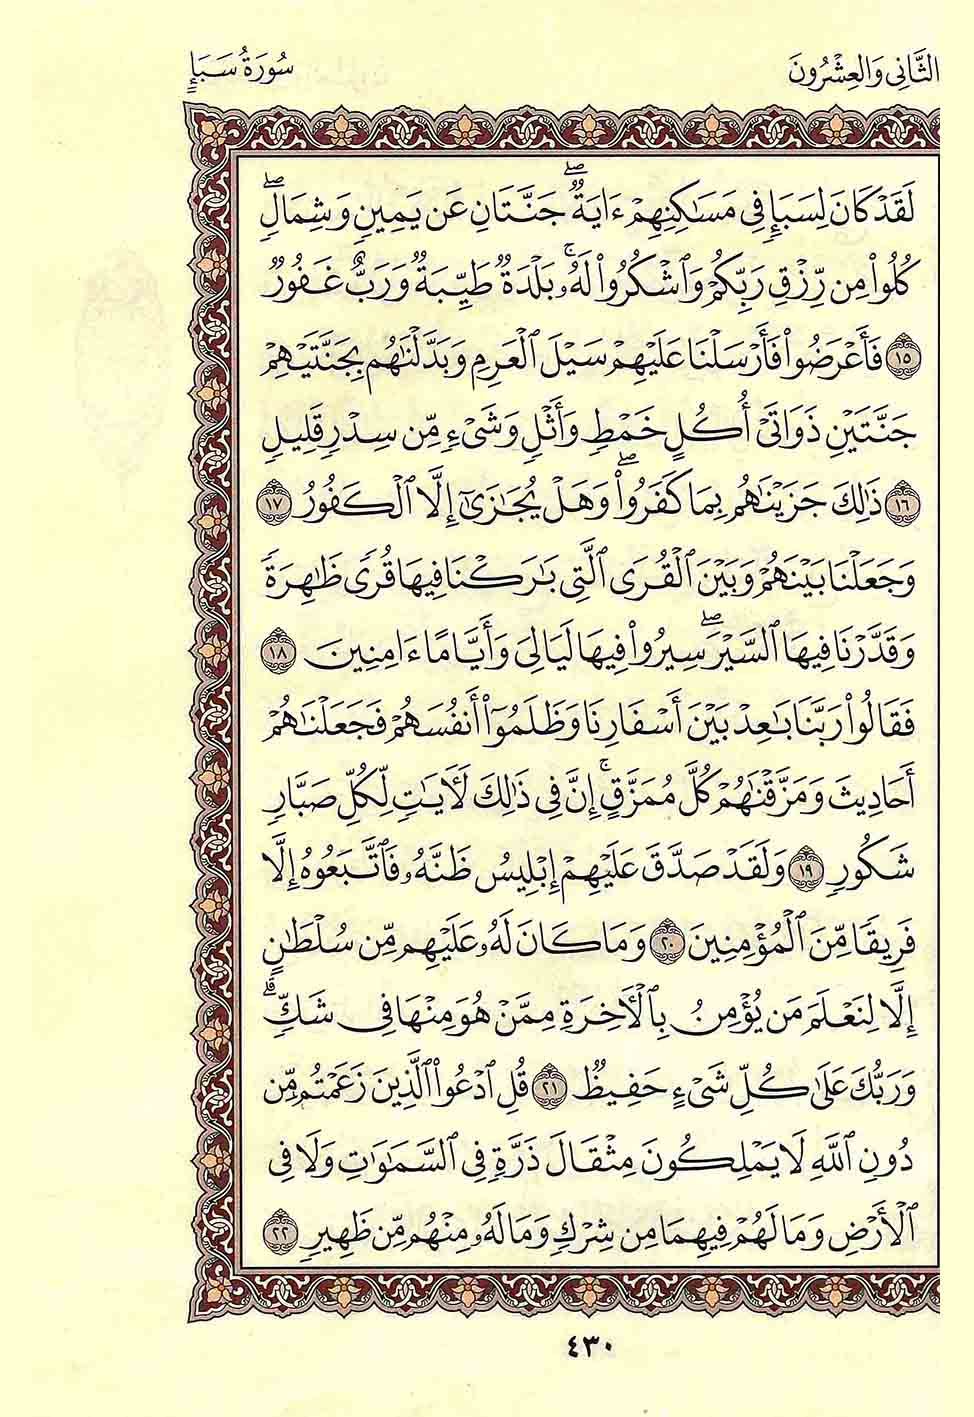 الثَّانِي وَالعِشْرُونَ
سُورَةُ سَبَإٍ
لَقَدْ كَانَ لِسَبَإٍ فِي مَسَٰكِنِهِمْ ءَايَةٌۖ جَنَّتَانِ عَن يَمِينٍ وَشِمَالٍۖ
كُلُوا۟ مِن رِّزْقِ رَبِّكُمْ وَٱشْكُرُوا۟ لَهُۥۚ بَلْدَةٌ طَيِّبَةٌ وَرَبٌّ غَفُورٌ
١٥ فَأَعْرَضُوا۟ فَأَرْسَلْنَا عَلَيْهِمْ سَيْلَ ٱلْعَرِمِ وَبَدَّلْنَٰهُم بِجَنَّتَيْهِمْ
جَنَّتَيْنِ ذَوَاتَىْ أُكُلٍ خَمْطٍ وَأَثْلٍ وَشَىْءٍ مِّن سِدْرٍ قَلِيلٍ
١٦ ذَٰلِكَ جَزَيْنَٰهُم بِمَا كَفَرُوا۟ۖ وَهَلْ نُجَٰزِىٓ إِلَّا ٱلْكَفُورَ ١٧
وَجَعَلْنَا بَيْنَهُمْ وَبَيْنَ ٱلْقُرَى ٱلَّتِى بَٰرَكْنَا فِيهَا قُرًى ظَٰهِرَةً
وَقَدَّرْنَا فِيهَا ٱلسَّيْرَۖ سِيرُوا۟ فِيهَا لَيَالِىَ وَأَيَّامًا ءَامِنِينَ ١٨
فَقَالُوا۟ رَبَّنَا بَٰعِدْ بَيْنَ أَسْفَارِنَا وَظَلَمُوٓا۟ أَنفُسَهُمْ فَجَعَلْنَٰهُمْ
أَحَادِيثَ وَمَزَّقْنَٰهُمْ كُلَّ مُمَزَّقٍۚ إِنَّ فِى ذَٰلِكَ لَءَايَٰتٍ لِّكُلِّ صَبَّارٍ
شَكُورٍ ١٩ وَلَقَدْ صَدَّقَ عَلَيْهِمْ إِبْلِيسُ ظَنَّهُۥ فَٱتَّبَعُوهُ إِلَّا
فَرِيقًا مِّنَ ٱلْمُؤْمِنِينَ ٢٠ وَمَا كَانَ لَهُۥ عَلَيْهِم مِّن سُلْطَٰنٍ
إِلَّا لِنَعْلَمَ مَن يُؤْمِنُ بِٱلْءَاخِرَةِ مِمَّنْ هُوَ مِنْهَا فِى شَكٍّۗ
وَرَبُّكَ عَلَىٰ كُلِّ شَىْءٍ حَفِيظٌ ٢١ قُلِ ٱدْعُوا۟ ٱلَّذِينَ زَعَمْتُم مِّن
دُونِ ٱللَّهِ لَا يَمْلِكُونَ مِثْقَالَ ذَرَّةٍ فِى ٱلسَّمَٰوَٰتِ وَلَا فِى
ٱلْأَرْضِ وَمَا لَهُمْ فِيهِمَا مِن شِرْكٍ وَمَا لَهُۥ مِنْهُم مِّن ظَهِيرٍ ٢٢
٤٣٠